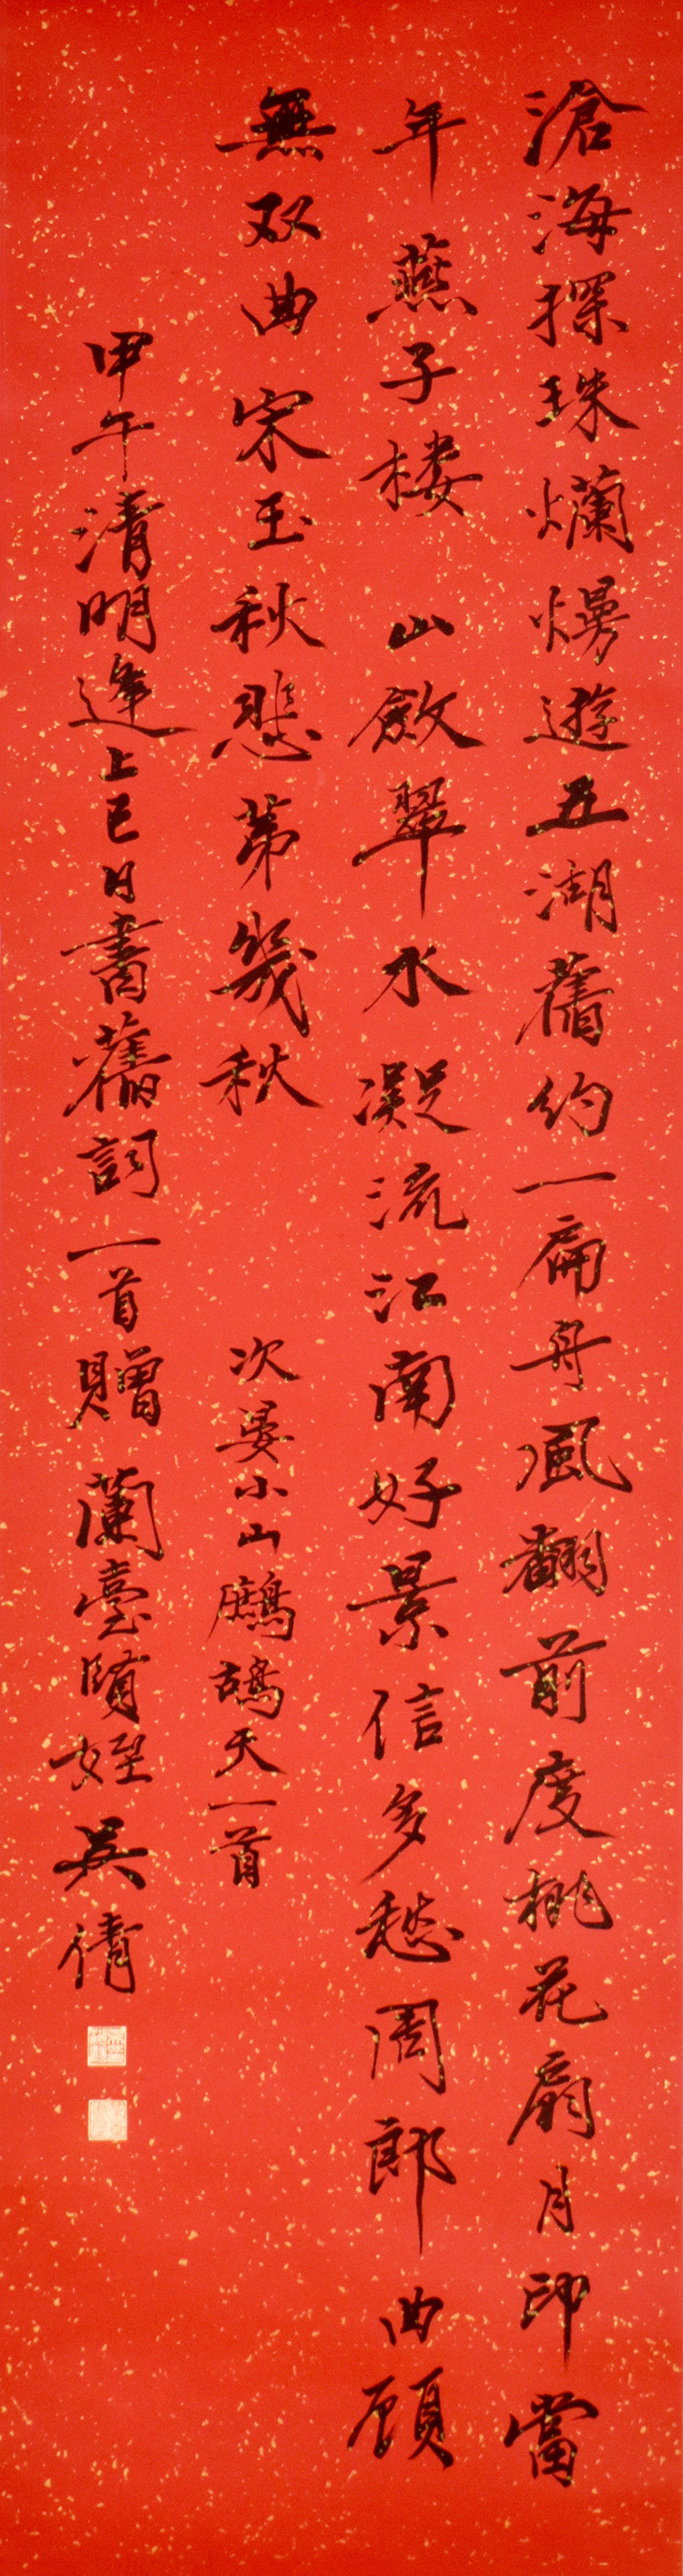 滄海探珠爛熳遊五湖舊約一扁舟風翻前度桃花扇月印當
年燕子楼山斂翠水凝流江南好景信多愁周郎曲顧
無双曲宋玉秋悲第幾秋
次晏小山鷓鴣天一首
甲午清明逢上巳日書舊詞一首贈蘭臺賢姪吳倩